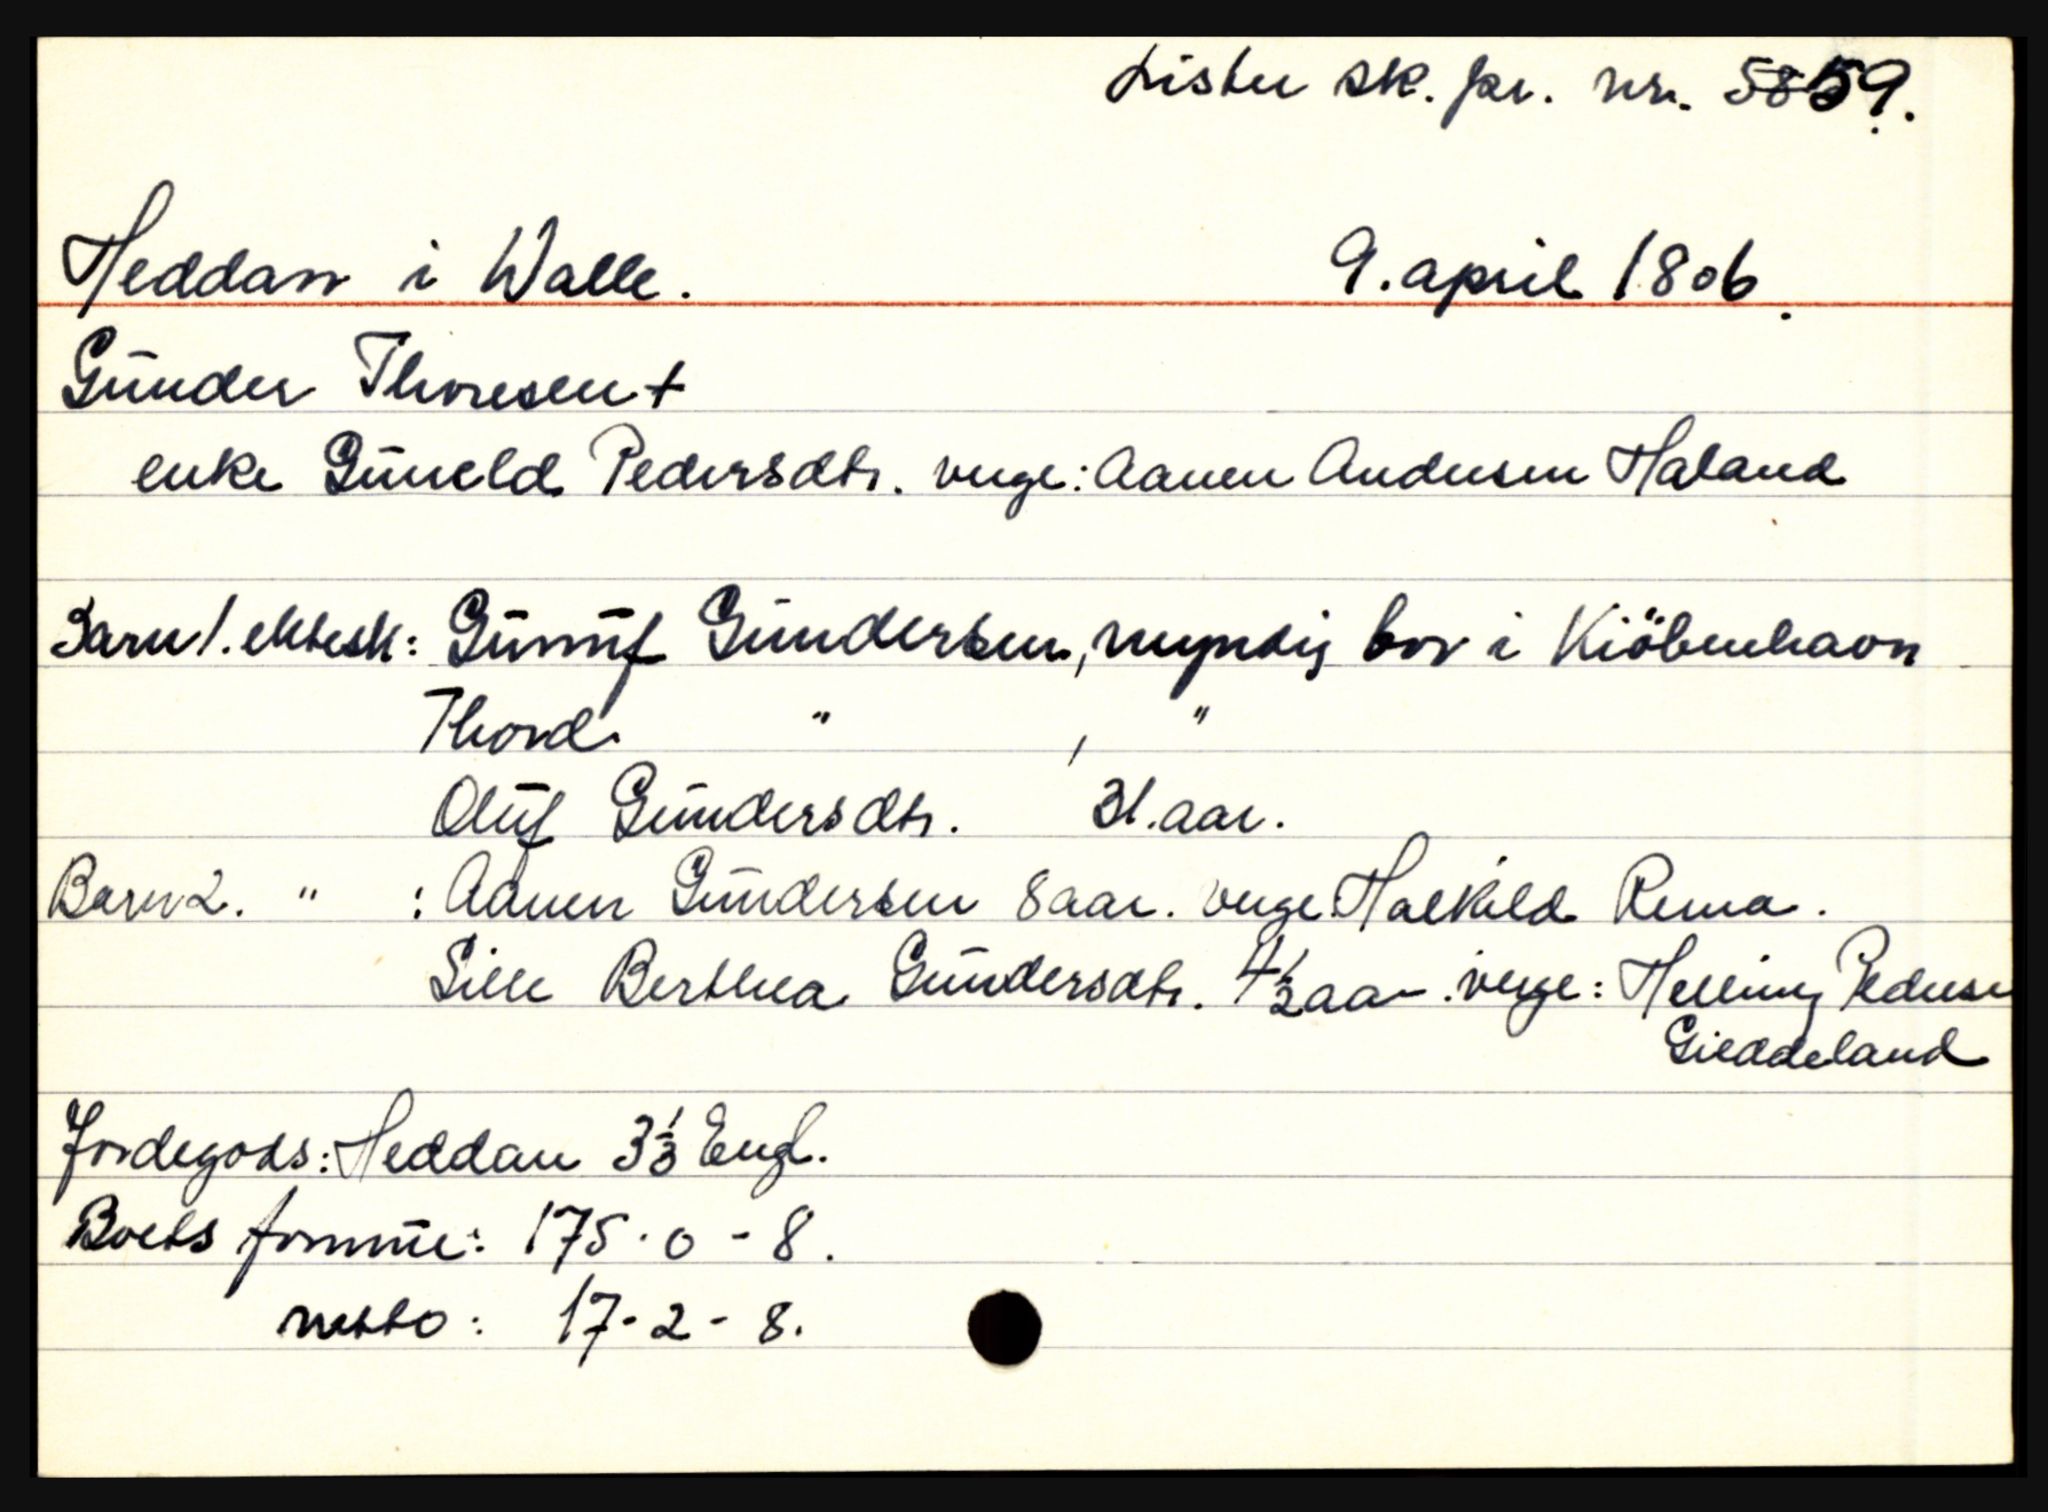 Lister sk. pr. nr. 5859.
Heddan i Walle. 9. april 1806.
Gunder Thoresen +
enke Guneld Pedersdtr. verge: Aanen Andersen Haland
Barn 1. ektesk: Gunuf Gundersen, myndig bor i Kiöbenhavn
Thord " , "
Oluf Gundersdtr. 31. aar.
Barn 2. " : Aanen Gundersen 8 aar. verge Halkild Rema.
Sille Berthea Gundersdtr. 4 1/2 aar. verge: Helling Pedersen
Gieddeland
Jordegods: Heddan 3 1/3 Engl.
Boets formue: 175 - 0 - 8.
netto: 17 - 2 - 8.